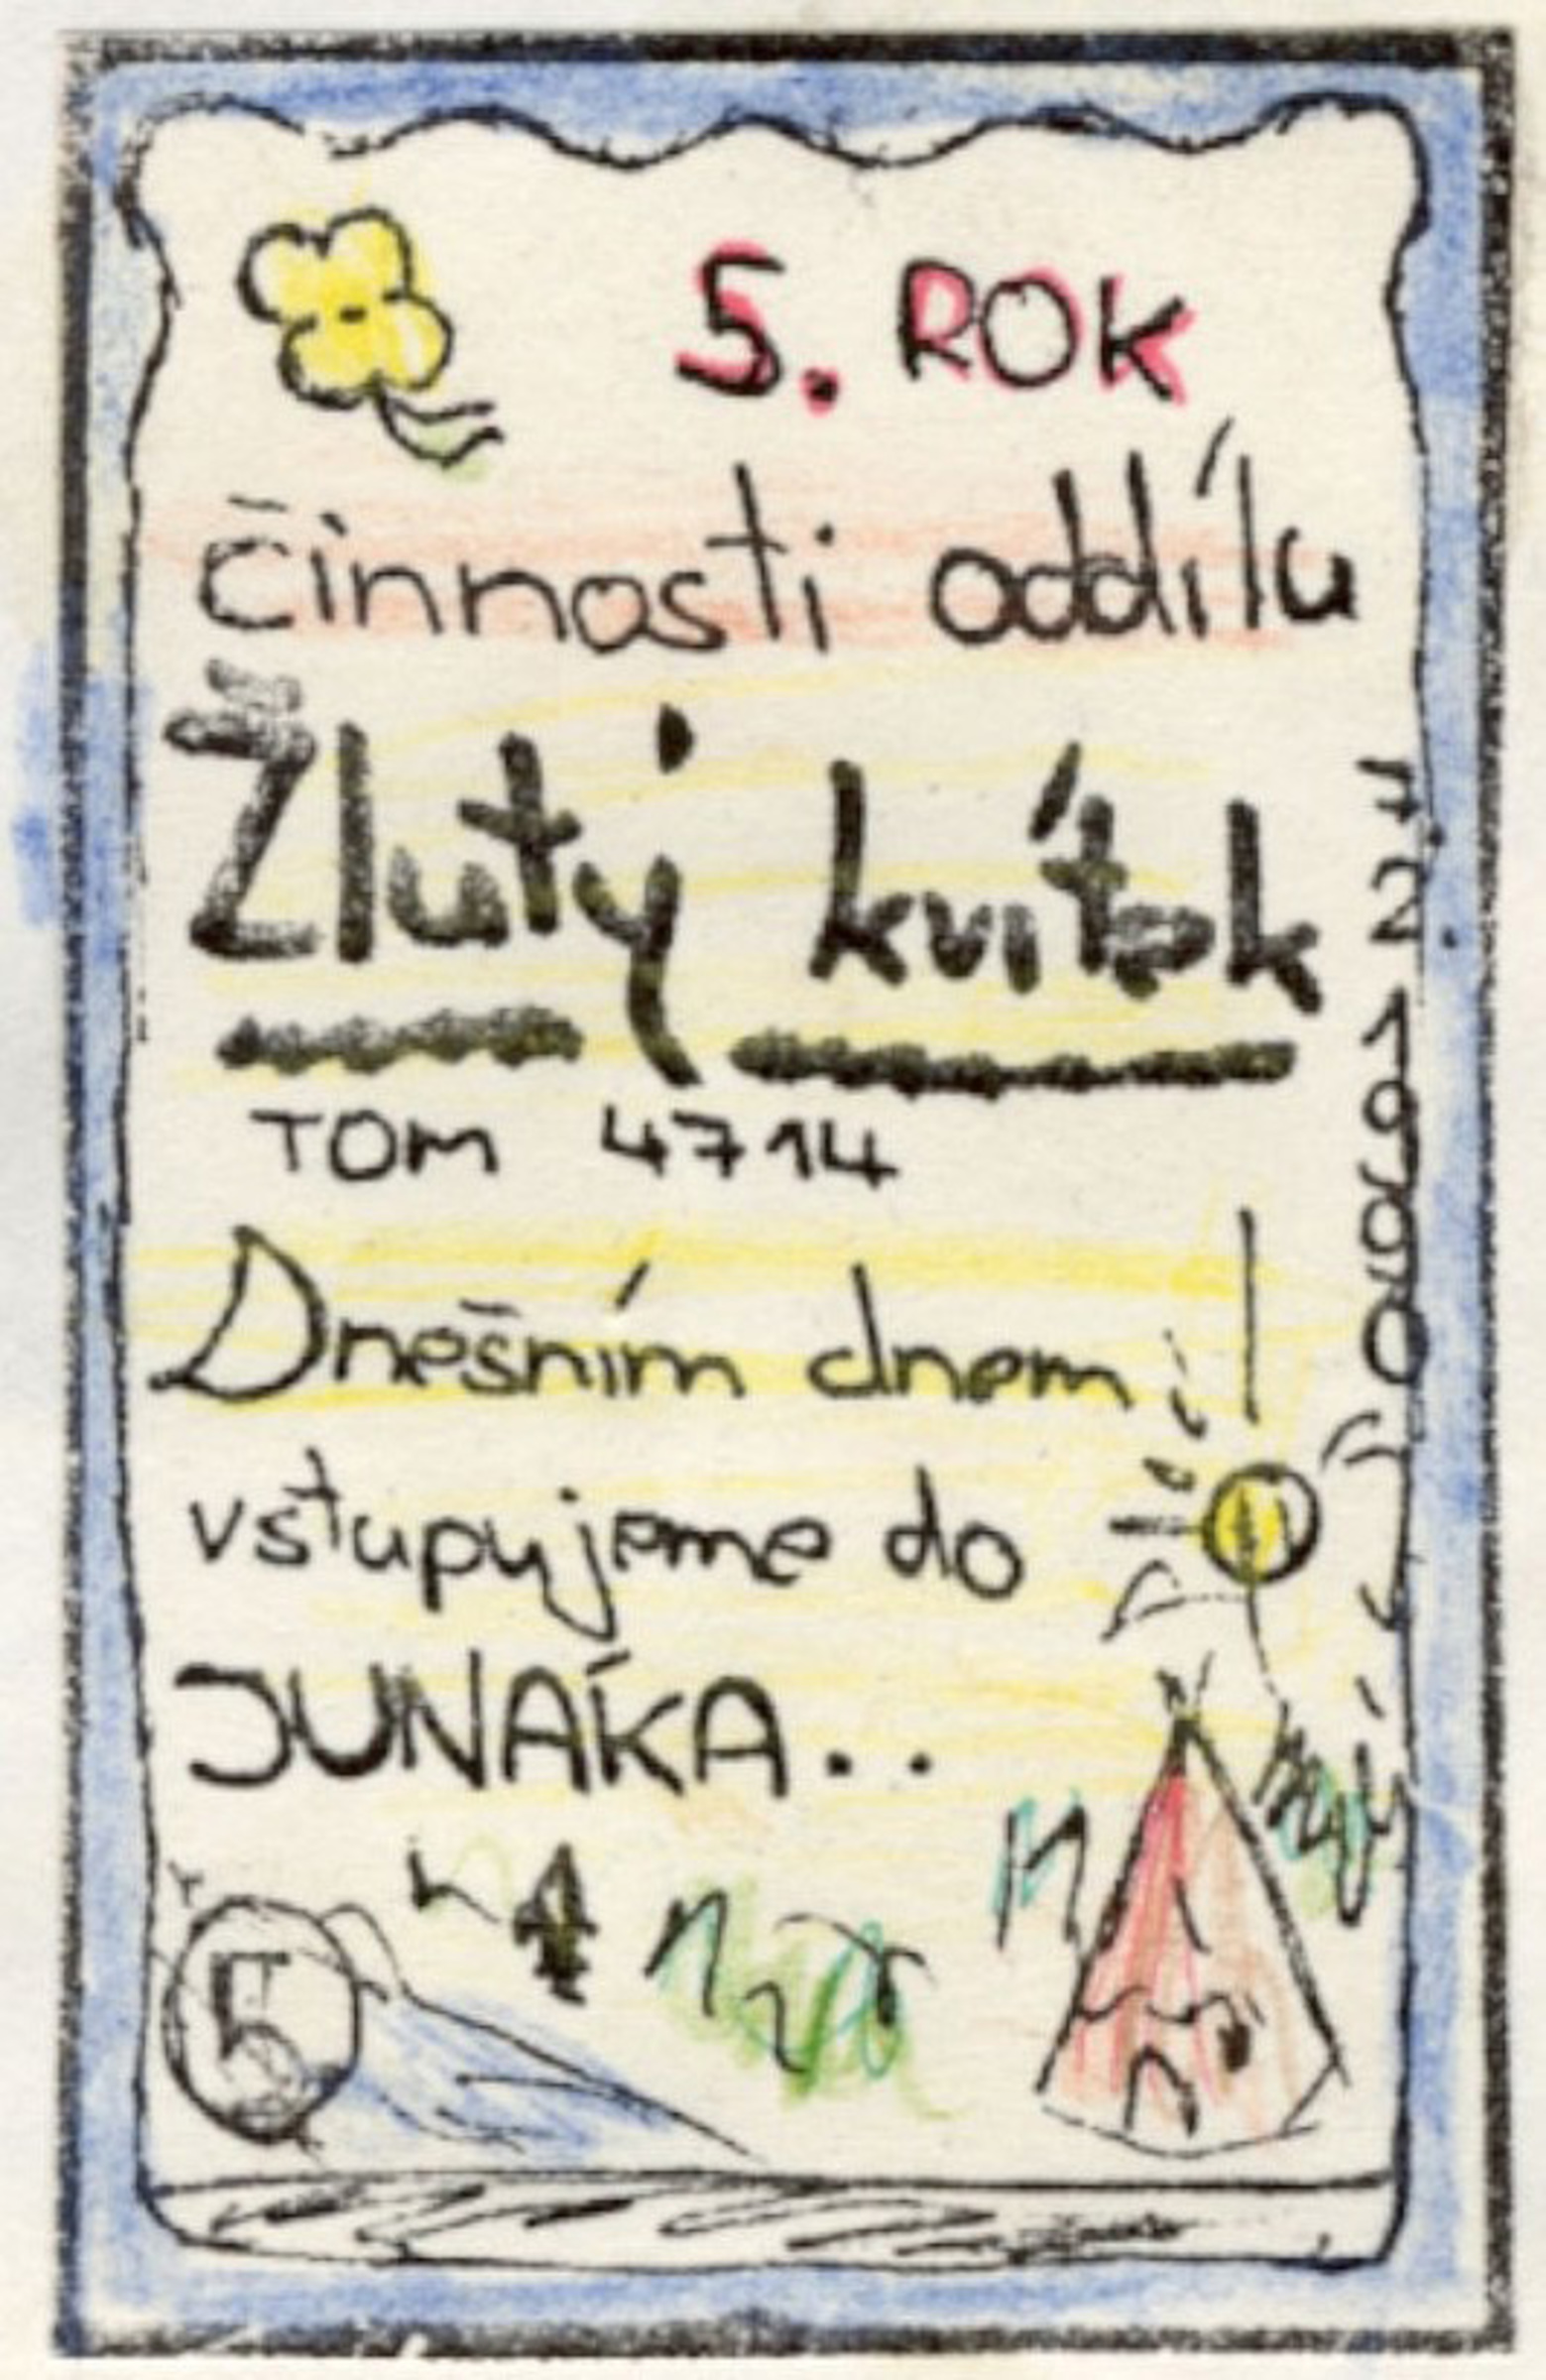 5. ROK
činnosti oddílu
Žlutý kvítek
TOM 4714
Dnešním dnem
vstupujeme do
JUNÁKA..
7.2.1990
5